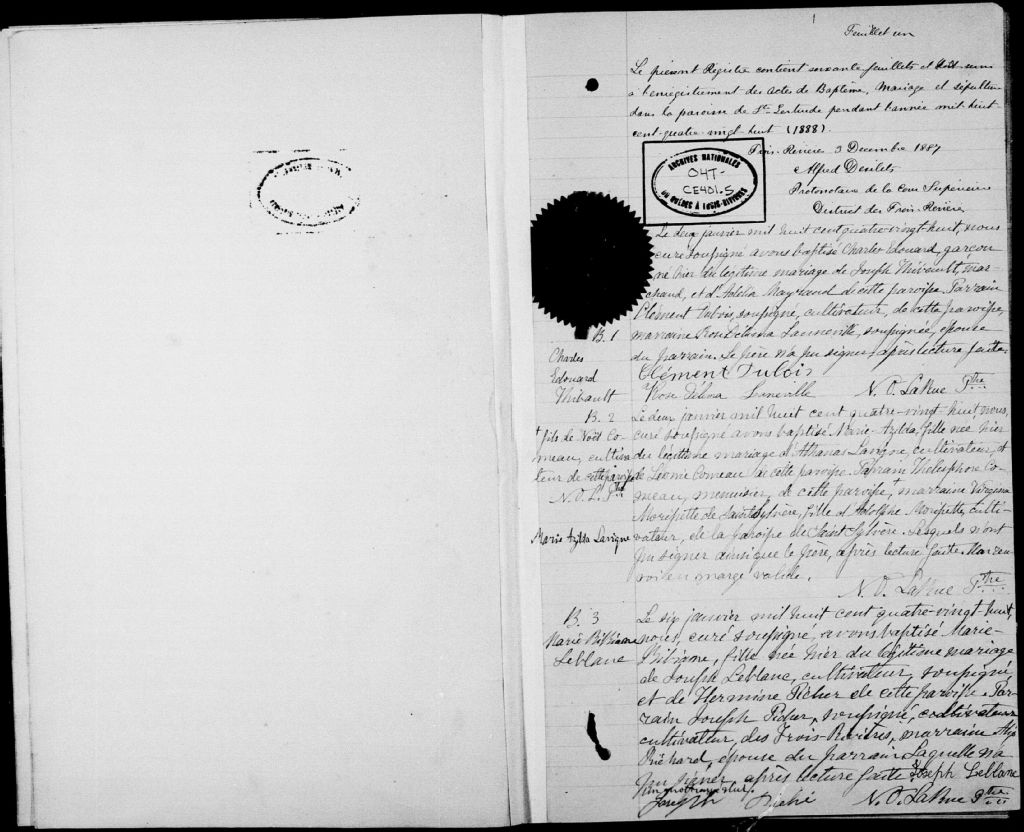 Feuillet un
Le présent Registre contient soixante feuillets et doit servir
à l'enregistrement des actes de Baptême, Mariage et sépulture
dans la paroisse de Ste Gertrude pendant l'année mil huit
cent quatre-vingt huit (1888).
Trois-Rivières 3 Decembre 1887
Alfred Desilets
Protonotaire de la Cour Supérieure
District des Trois-Rivières
ARCHIVES NATIONALES
04T-
CE401-S
DU QUÉBEC À TROIS-RIVIÈRES
Le deux janvier mil huit cent quatre-vingt-huit, nous
curé soussigné avons baptisé Charles Edouard, garçon
né hier du légitime mariage de Joseph Thibault, mar-
chand, et d' Maynaud de cette paroisse. Parrain
Clément Dubois, soussigné, cultivateur, de cette paroisse,
marraine Rose Delima Lanneville, soussignée, épouse
du parrain. Le père n'a pu signer, après lecture faite.
Clément Dubois
Rose Délima Linneville N. O. LaRue Ptre
B. 1
Charles
Edouard
Thibault
Le deux janvier mil huit cent quatre-vingt huit, nous,
curé soussigné avons baptisé Marie-Azilda, fille née hier
du légitime mariage d'Athanas Lavigne, cultivateur, et
de Léonie Comeau de cette paroisse. Parrain Thélesphore Co-
meau, menuisier, de cette paroisse,+ marraine Virginia
Morissette de Saint Sylvère, fille d'Adolphe Morissette, culti-
vateur, de la paroisse de Saint Sylvère. Lesquels n'ont
pu signer ainsi que le père, après lecture faite. Un ren-
voi en marge valide.
N. O. LaRue Ptre
B. 2
+ fils de Noël Co-
meau, cultiva
teur de cette paroisse
N. O. L. Ptre
Marie Azilda Lavigne
Le six janvier mil huit cent quatre-vingt huit,
nous, curé soussigné, avons baptisé Marie-
Bibiane, fille née hier du légitime mariage
de Joseph Leblanc, cultivateur, soussigné
et de Hermine Picher de cette paroisse. Par-
rain Joseph Picher, soussigné, cultivateur
cultivateur, des Trois-Rivières, marraine
Richard, épouse du parrain. Laquelle n'a
pu signer, après lecture faite. Joseph Leblanc
Un mot
Joseph Piché N. O. LaRue Ptre
B. 3
Marie Bibiane
Leblanc